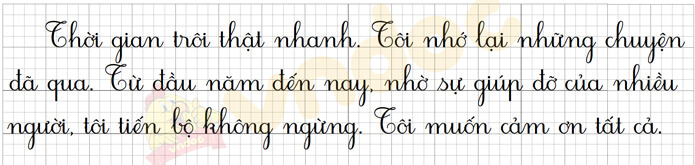 Thời gian trôi thật nhanh. Tôi nhớ lại những chuyện
đã qua. Từ đầu năm đến nay, nhờ sự giúp đỡ của nhiều
người, tôi tiến bộ không ngừng. Tôi muốn cảm ơn tất cả.
vndoc